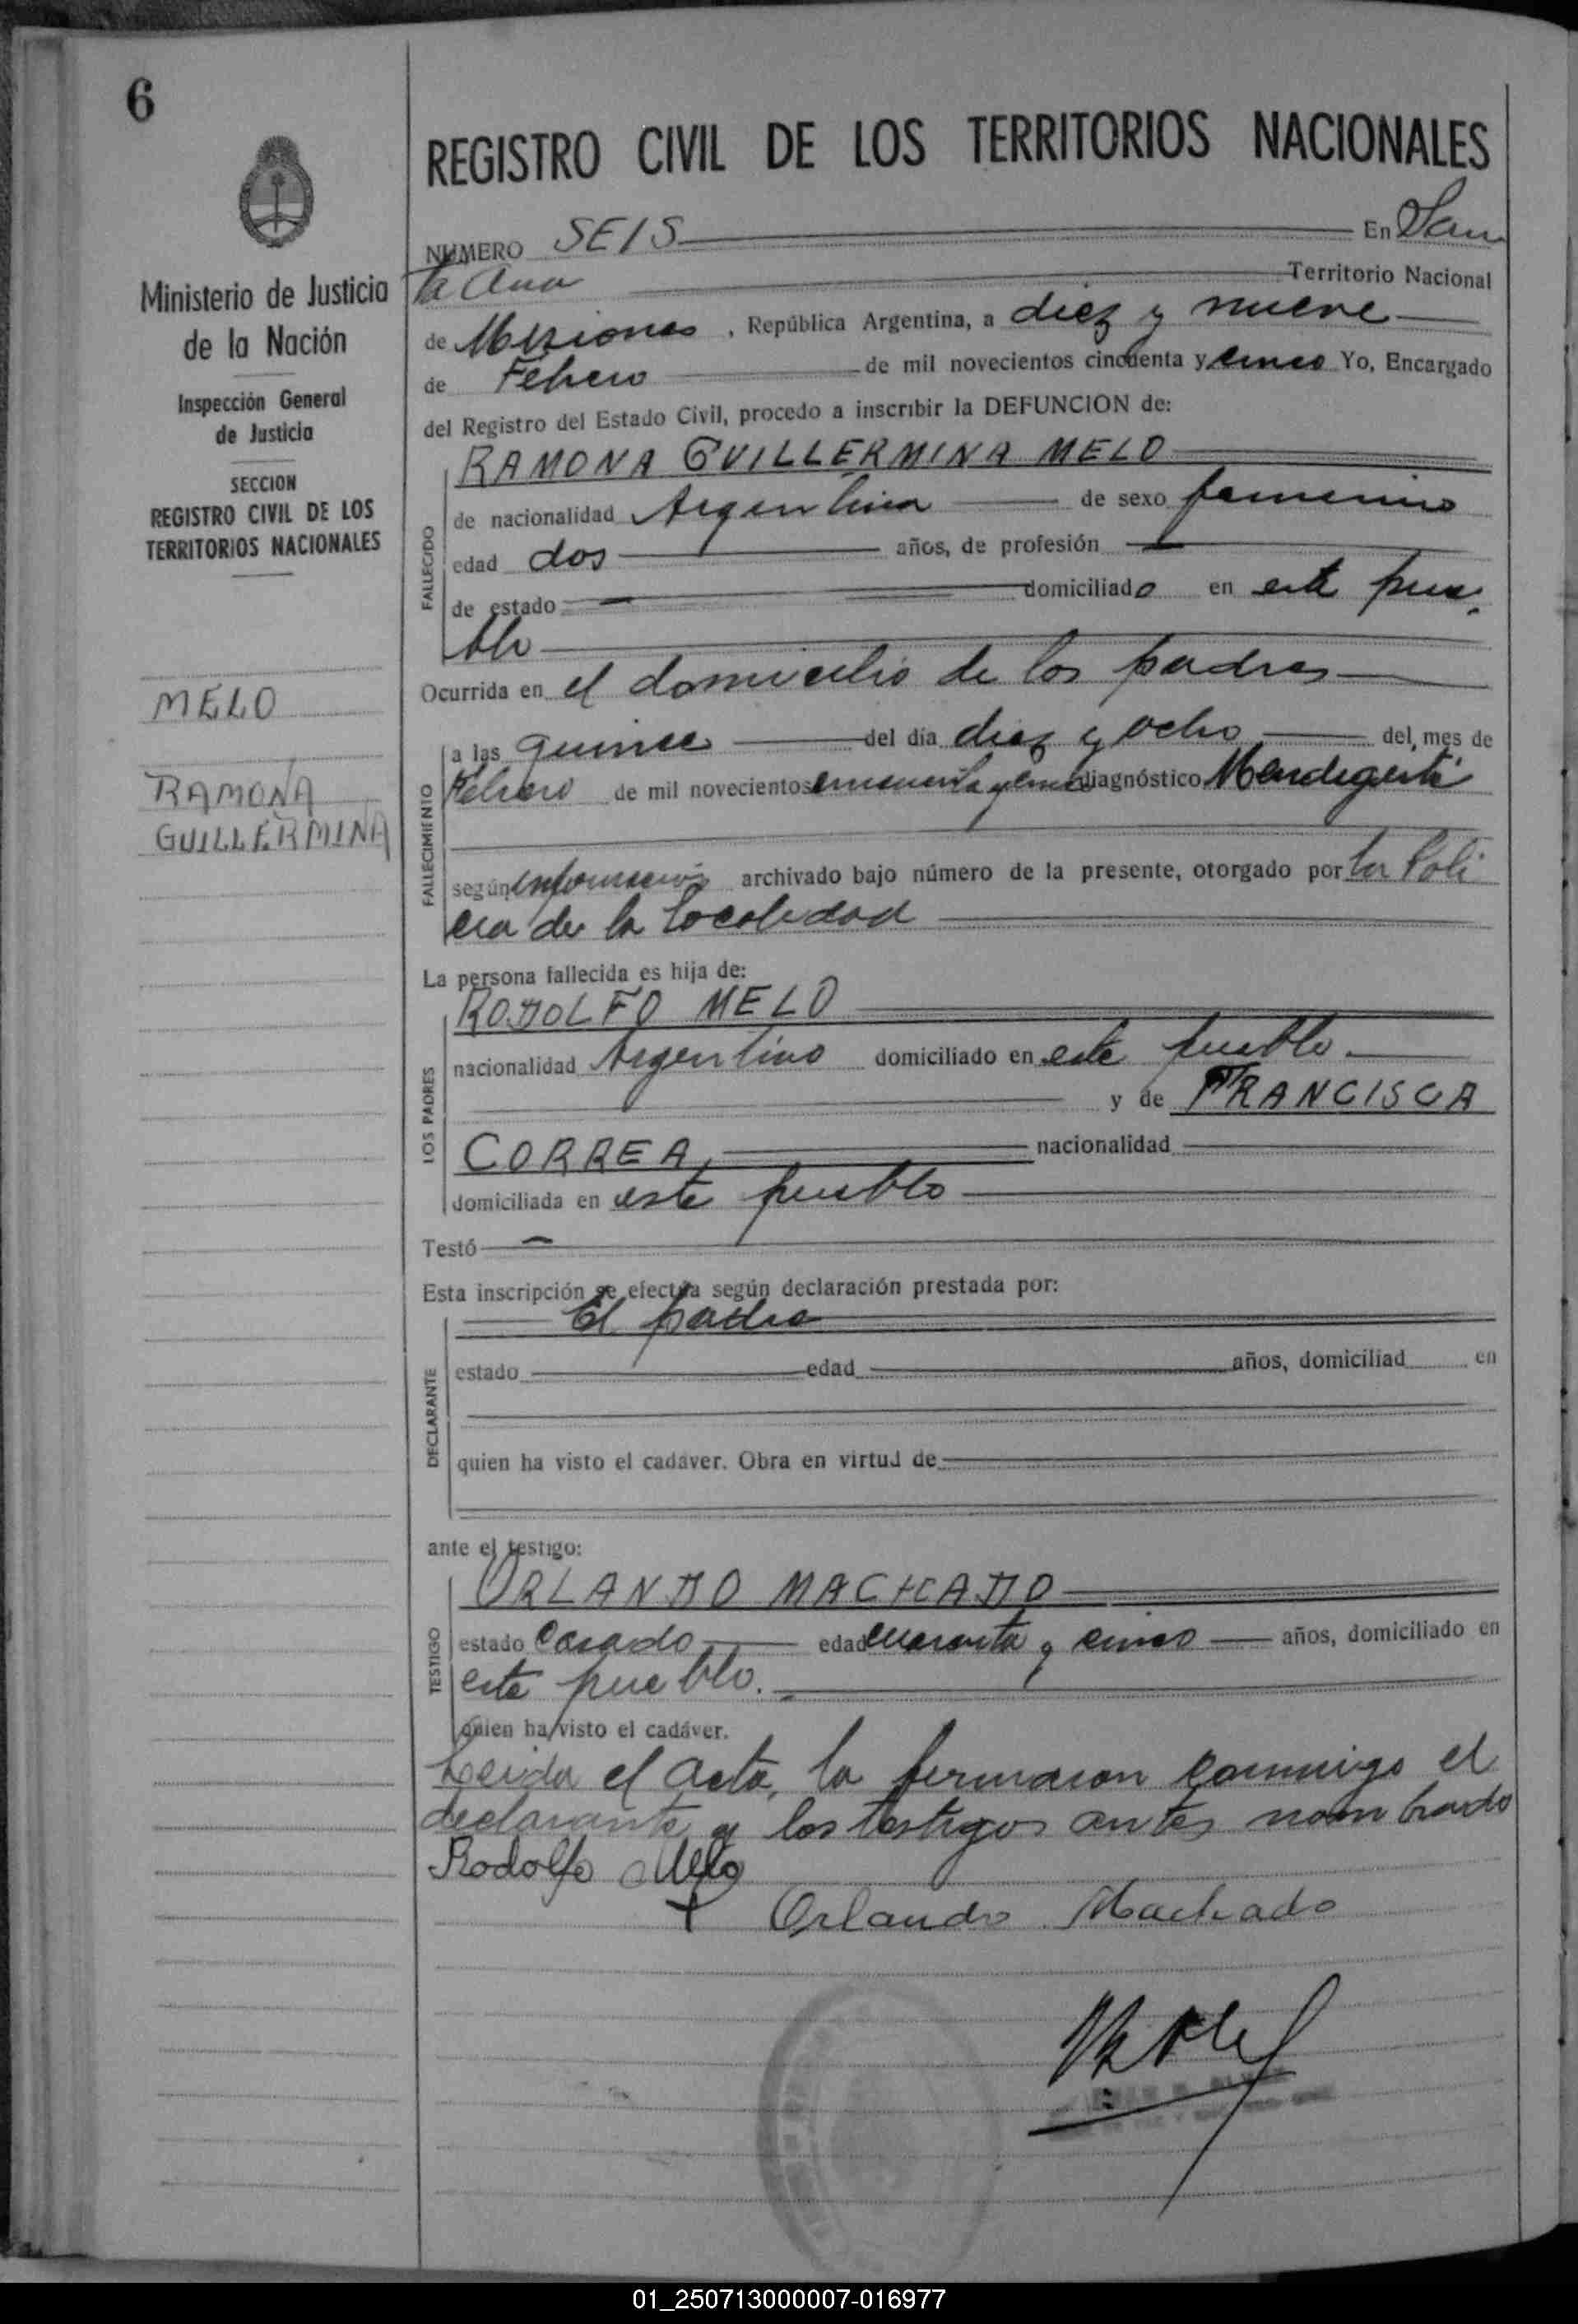 6
REGISTRO CIVIL DE LOS TERRITORIOS NACIONALES
NUMERO SEIS En San
ta Ana Territorio Nacional
de Misiones, República Argentina, a diez y nueve
de Febrero de mil novecientos cincuenta y cinco Yo, Encargado
del Registro del Estado Civil, procedo a inscribir la DEFUNCION de:
Ministerio de Justicia
de la Nación
Inspección General
de Justicia
SECCION
REGISTRO CIVIL DE LOS
TERRITORIOS NACIONALES
MELO
RAMONA
GUILLERMINA
FALLECIDO
RAMONA GUILLERMINA MELO
de nacionalidad Argentina de sexo femenino
edad dos años, de profesión
de estado domiciliado en este pue
blo
Ocurrida en el domicilio de los padres
FALLECIMIENTO
a las quince del día diez y ocho del mes de
Febrero de mil novecientos cincuenta y cinco diagnóstico
según informacion archivado bajo número de la presente, otorgado por la Poli
cia de la localidad
La persona fallecida es hija de:
LOS PADRES
RODOLFO MELO
nacionalidad Argentino domiciliado en este pueblo.
y de FRANCISCA
CORREA, nacionalidad
domiciliada en este pueblo
Testó
Esta inscripción se efectúa según declaración prestada por:
DECLARANTE
El padre
estado edad años, domiciliad en
quien ha visto el cadáver. Obra en virtud de
ante el testigo:
TESTIGO
ORLANDO MACHADO
estado casado edad cuarenta y cinco años, domiciliado en
este pueblo.
quien ha visto el cadáver.
Leida el acta, la firmaron conmigo el
declarante y los testigos antes nombrado
Rodolfo Melo
Orlando Machado
01_250713000007-016977